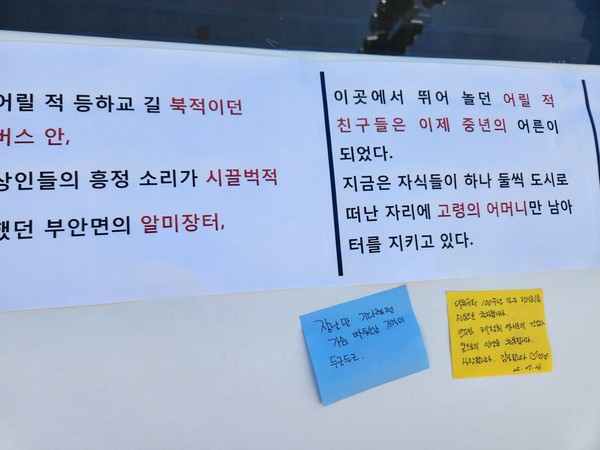 어릴 적 등하교 길 북적이던
버스 안,
상인들의 흥정 소리가 시끌벅적
했던 부안면의 알미장터,
이곳에서 뛰어 놀던 어릴 적
친구들은 이제 중년의 어른이
되었다.
지금은 자식들이 하나 둘씩 도시로
떠난 자리에 고령의 어머니만 남아
터를 지키고 있다.
장난만 기다려던
가신 따듯한 기억이
두근두근.
100주년 전시회를
진심으로 축하합니다.
앞으로의 인생을 축복합니다.
사랑합니다. 감사합니다 ♡♡♡